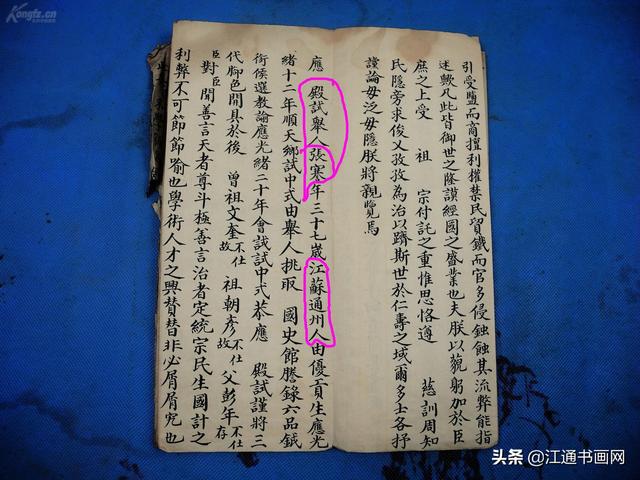 引受鹽而商擅利權禁民貿鐵而官多侵蝕蝕其流弊能指
述歟凡此皆御世之隆謨經國之盛業也夫朕以藐躬加於臣
庶之上受祖宗付託之重惟思恪遵慈訓周知
民隱旁求俊乂孜孜為治以躋斯世於仁壽之域爾多士各抒
讜論毋泛毋隱朕將親覽焉
應殿試舉人張寋年三十七歲江蘇通州人由優貢生應光
緒十二年順天鄉試中式由舉人挑取國史館謄錄六品銜
銜候選教諭應光緒二十年會試試中式恭應殿試謹將三
代腳色開具於後曾祖文奎不仕故祖朝彥不仕故父彭年不仕存
臣對臣聞善言天者尊斗極善言治者定統宗民生國計之
利弊不可節節喻也學術人才之興贊替非必屑屑究也
Kongfz.cn
头条 @江通书画网